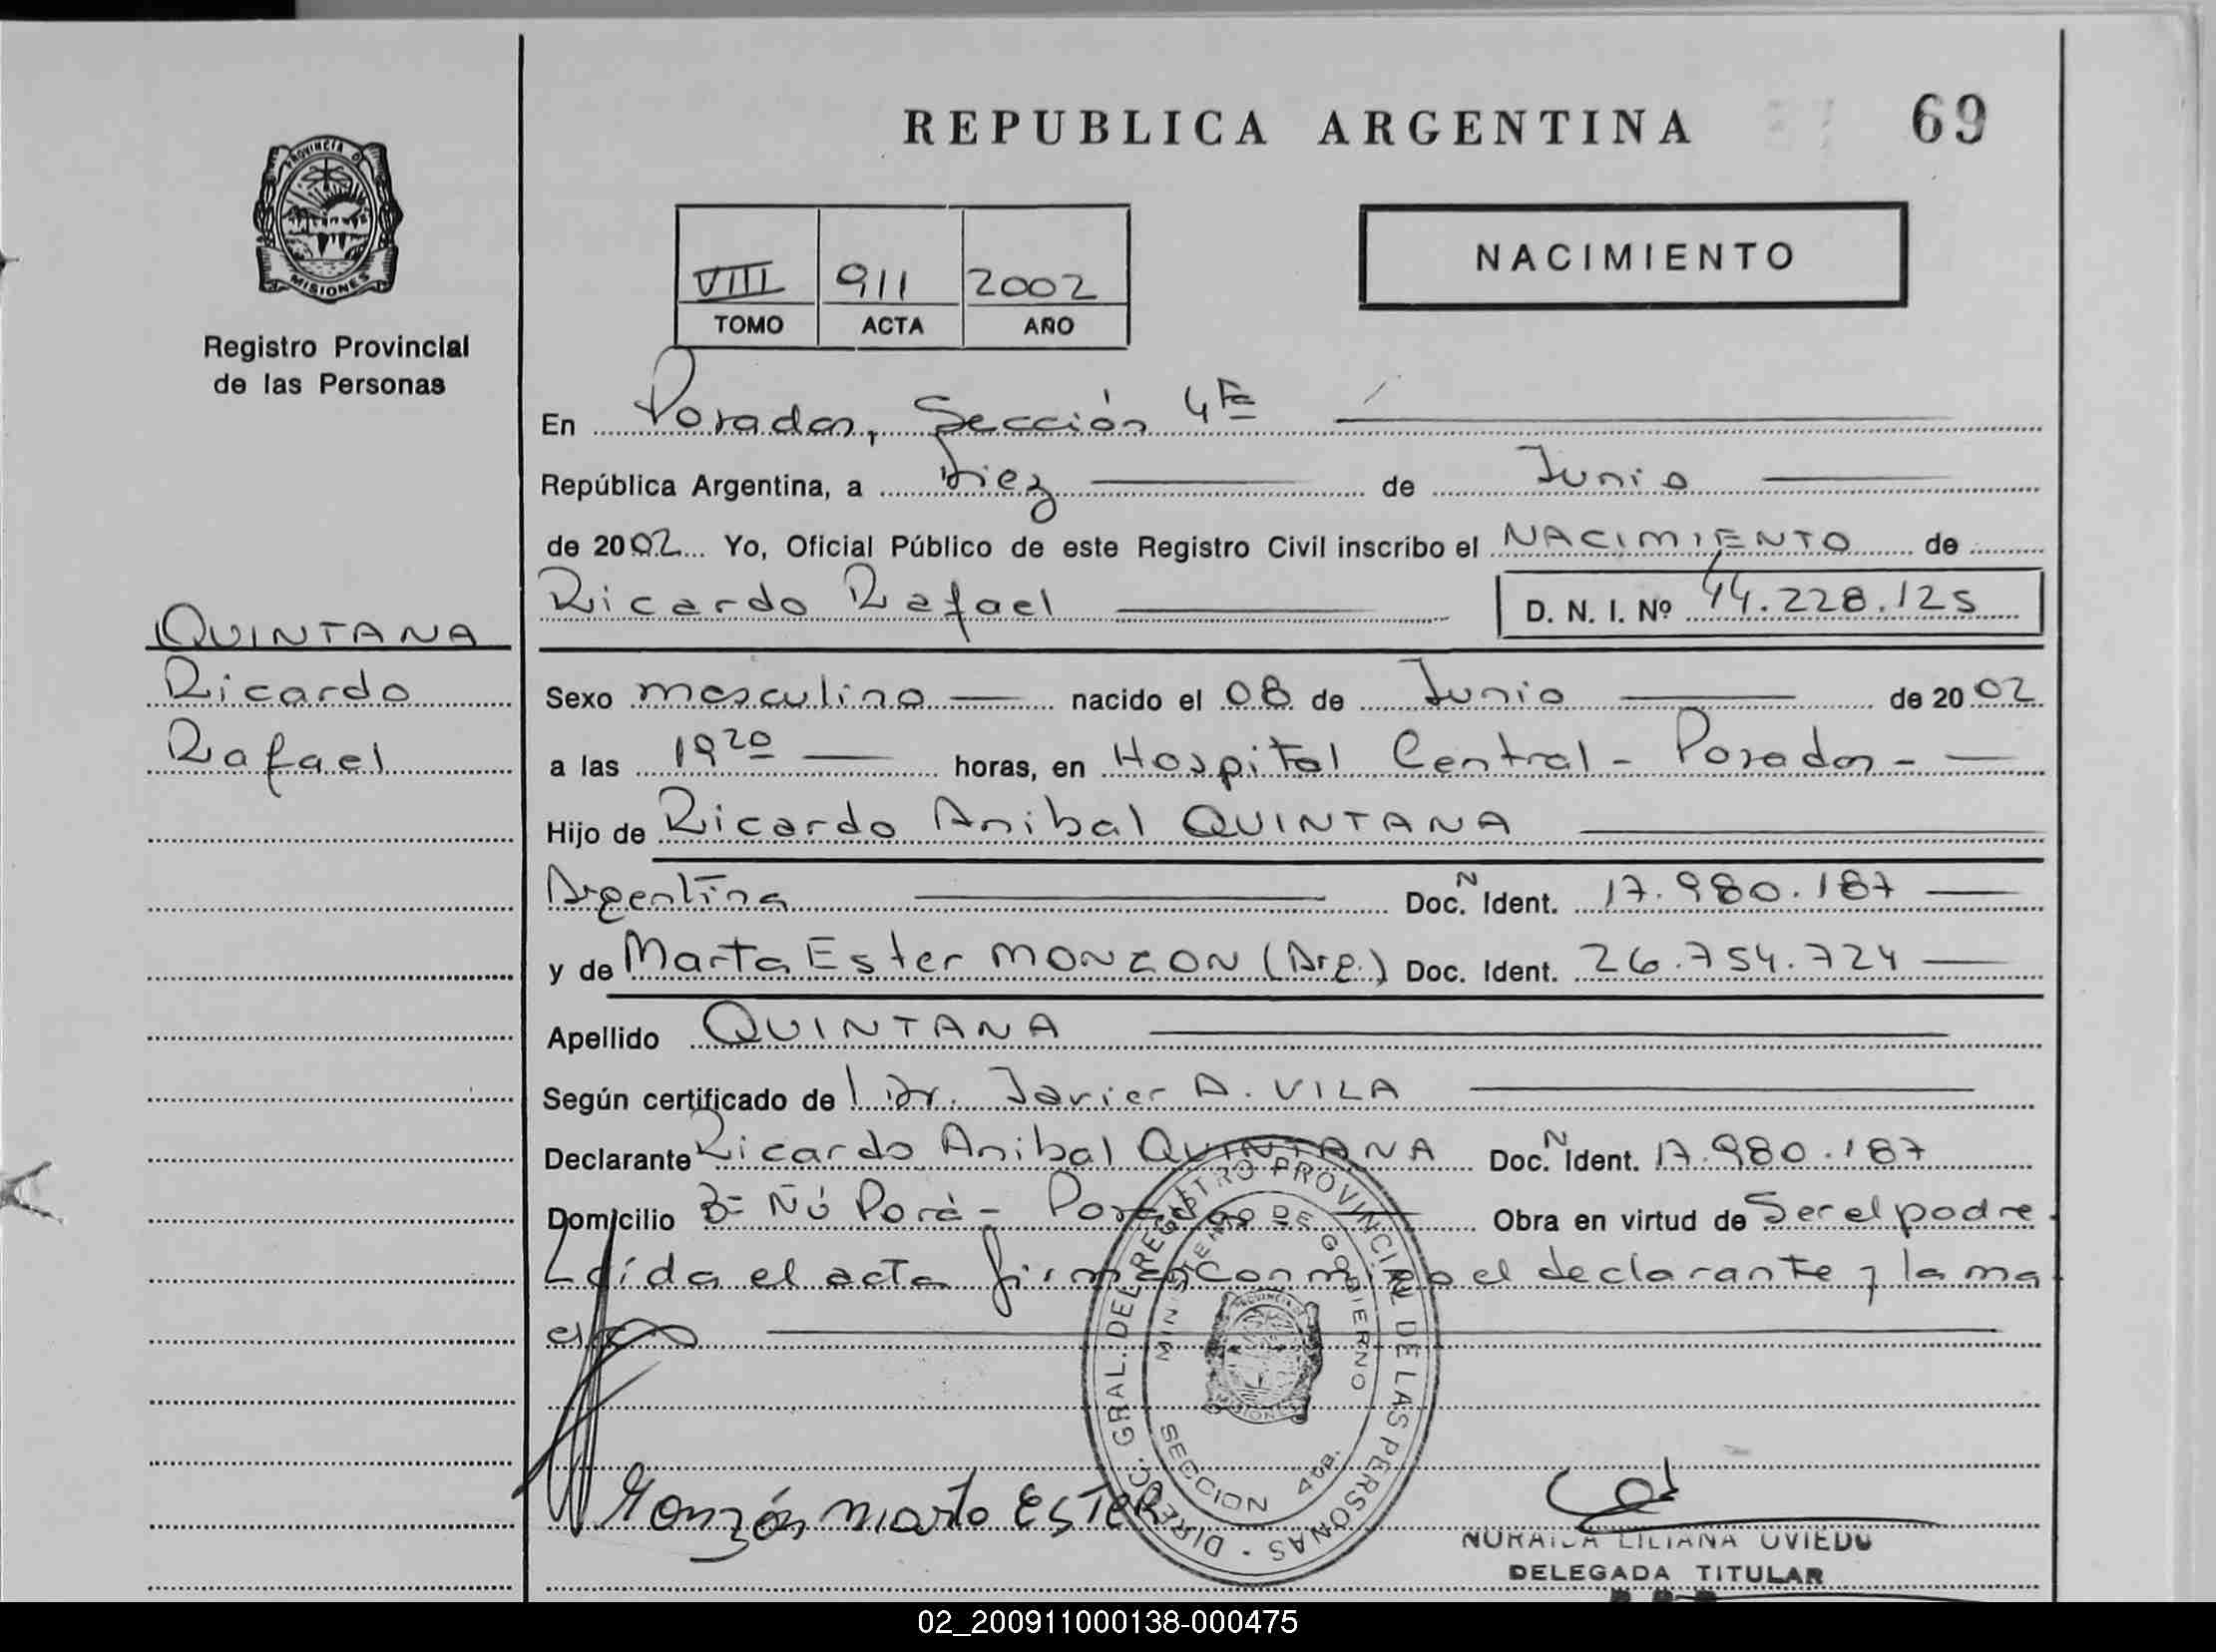 REPUBLICA ARGENTINA 69
PROVINCIA DE
MISIONES
Registro Provincial
de las Personas
NACIMIENTO
VIII 911 2002
TOMO ACTA AÑO
En Posadas, Sección 4ta
República Argentina, a Diez de Junio
de 2002 Yo, Oficial Público de este Registro Civil inscribo el NACIMIENTO de
Ricardo Rafael D. N. I. Nº 44.228.125
QUINTANA
Ricardo
Rafael
Sexo masculino nacido el 08 de Junio de 2002
a las 19 20 horas, en Hospital Central - Posadas -
Hijo de Ricardo Anibal QUINTANA
Argentina Doc. N Ident. 17.980.187
y de Marta Ester MONZON (Arg.) Doc. Ident. 26.754.724
Apellido QUINTANA
Según certificado de l Dr. Javier A. VILA
Declarante Ricardo Anibal QUINTANA Doc. N Ident. 17.980.187
Domicilio Bº Ñú Porá - Posadas Obra en virtud de Ser el padre.
Leída el acta firman conmigo el declarante y la ma
DIREC. GRAL. DEL REGISTRO PROVINCIAL DE LAS PERSONAS
MINISTERIO DE GOBIERNO
SECCION 4ta.
Monzón Marta ESTER
LILIANA OVIEDO
DELEGADA TITULAR
02_200911000138-000475